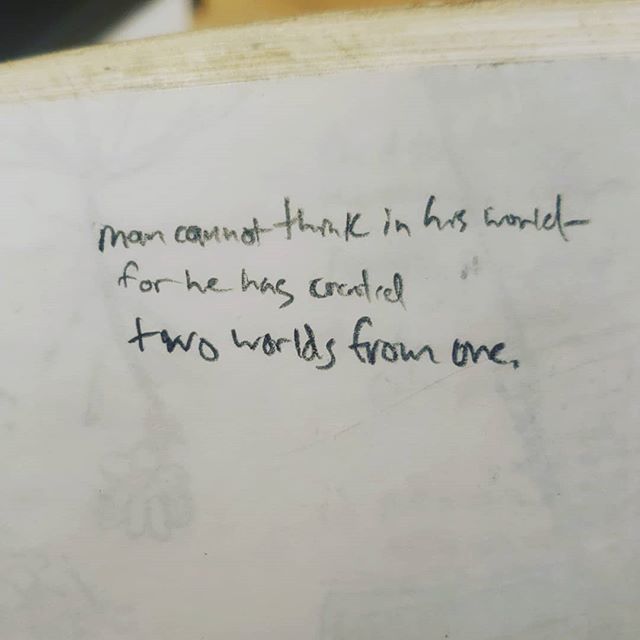 man cannot think in his world-
for he has created
two worlds from one.